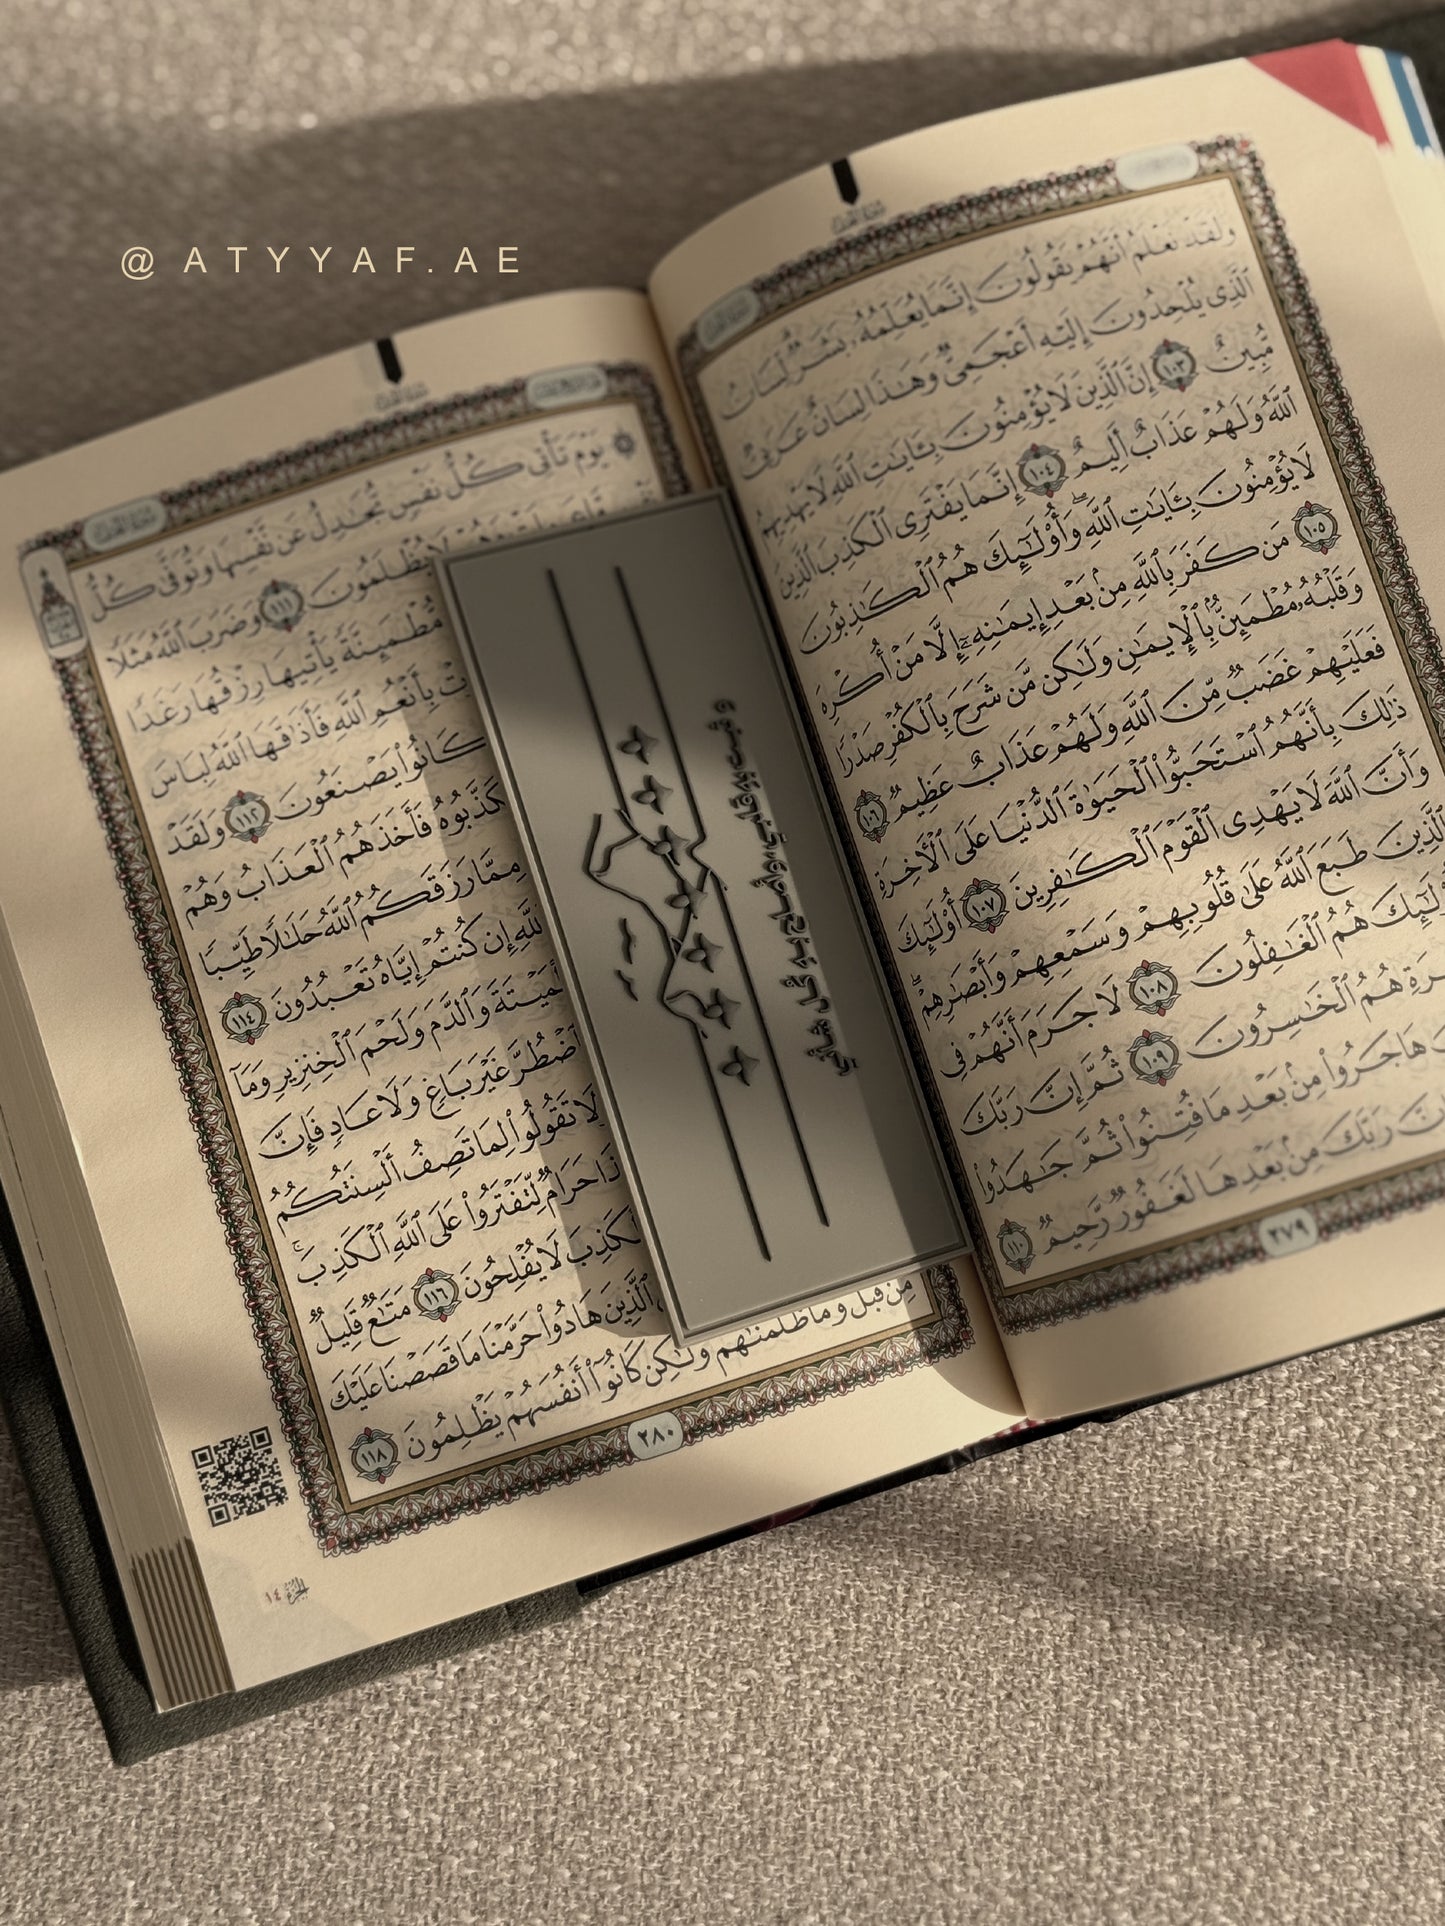 @ATYYAF.AE
وَلَقَدْ نَعْلَمُ أَنَّهُمْ يَقُولُونَ إِنَّمَا يُعَلِّمُهُۥ بَشَرٌ لِّسَانُ
ٱلَّذِى يُلْحِدُونَ إِلَيْهِ أَعْجَمِىٌّ وَهَٰذَا لِسَانٌ عَرَبِىٌّ
مُّبِينٌ ١٠٣ إِنَّ ٱلَّذِينَ لَا يُؤْمِنُونَ بِـَٔايَٰتِ ٱللَّهِ لَا يَهْدِيهِمُ
ٱللَّهُ وَلَهُمْ عَذَابٌ أَلِيمٌ ١٠٤ إِنَّمَا يَفْتَرِى ٱلْكَذِبَ ٱلَّذِينَ
لَا يُؤْمِنُونَ بِـَٔايَٰتِ ٱللَّهِ ۖ وَأُو۟لَٰٓئِكَ هُمُ ٱلْكَٰذِبُونَ
١٠٥ مَن كَفَرَ بِٱللَّهِ مِنۢ بَعْدِ إِيمَٰنِهِۦٓ إِلَّا مَنْ أُكْرِهَ
وَقَلْبُهُۥ مُطْمَئِنٌّۢ بِٱلْإِيمَٰنِ وَلَٰكِن مَّن شَرَحَ بِٱلْكُفْرِ صَدْرًا
فَعَلَيْهِمْ غَضَبٌ مِّنَ ٱللَّهِ وَلَهُمْ عَذَابٌ عَظِيمٌ ١٠٦
ذَٰلِكَ بِأَنَّهُمُ ٱسْتَحَبُّوا۟ ٱلْحَيَوٰةَ ٱلدُّنْيَا عَلَى ٱلْـَٔاخِرَةِ
وَأَنَّ ٱللَّهَ لَا يَهْدِى ٱلْقَوْمَ ٱلْكَٰفِرِينَ ١٠٧ أُو۟لَٰٓئِكَ
ٱلَّذِينَ طَبَعَ ٱللَّهُ عَلَىٰ قُلُوبِهِمْ وَسَمْعِهِمْ وَأَبْصَٰرِهِمْ ۖ
وَلَٰٓئِكَ هُمُ ٱلْغَٰفِلُونَ ١٠٨ لَا جَرَمَ أَنَّهُمْ فِى
رَةِ هُمُ ٱلْخَٰسِرُونَ ١٠٩ ثُمَّ إِنَّ رَبَّكَ
هَاجَرُوا۟ مِنۢ بَعْدِ مَا فُتِنُوا۟ ثُمَّ جَٰهَدُوا۟
نَّ رَبَّكَ مِنۢ بَعْدِهَا لَغَفُورٌ رَّحِيمٌ ١١٠
٢٧٩
يَوْمَ تَأْتِى كُلُّ نَفْسٍ تُجَٰدِلُ عَن نَّفْسِهَا وَتُوَفَّىٰ كُلُّ
لَا يُظْلَمُونَ ١١١ وَضَرَبَ ٱللَّهُ مَثَلًا
مُّطْمَئِنَّةً يَأْتِيهَا رِزْقُهَا رَغَدًا
تْ بِأَنْعُمِ ٱللَّهِ فَأَذَٰقَهَا ٱللَّهُ لِبَاسَ
كَانُوا۟ يَصْنَعُونَ ١١٢ وَلَقَدْ
كَذَّبُوهُ فَأَخَذَهُمُ ٱلْعَذَابُ وَهُمْ
مِمَّا رَزَقَكُمُ ٱللَّهُ حَلَٰلًا طَيِّبًا
ٱللَّهِ إِن كُنتُمْ إِيَّاهُ تَعْبُدُونَ ١١٤
ٱلْمَيْتَةَ وَٱلدَّمَ وَلَحْمَ ٱلْخِنزِيرِ وَمَآ
ٱضْطُرَّ غَيْرَ بَاغٍ وَلَا عَادٍ فَإِنَّ
لَا تَقُولُوا۟ لِمَا تَصِفُ أَلْسِنَتُكُمُ
ذَا حَرَامٌ لِّتَفْتَرُوا۟ عَلَى ٱللَّهِ ٱلْكَذِبَ ۚ
ٱلْكَذِبَ لَا يُفْلِحُونَ ١١٦ مَتَٰعٌ قَلِيلٌ
ٱلَّذِينَ هَادُوا۟ حَرَّمْنَا مَا قَصَصْنَا عَلَيْكَ
مِن قَبْلُ وَمَا ظَلَمْنَٰهُمْ وَلَٰكِن كَانُوٓا۟ أَنفُسَهُمْ يَظْلِمُونَ ١١٨
٢٨٠
الجزء ١٤
و ثبت به قلبي، وأصلح به كُل شأني